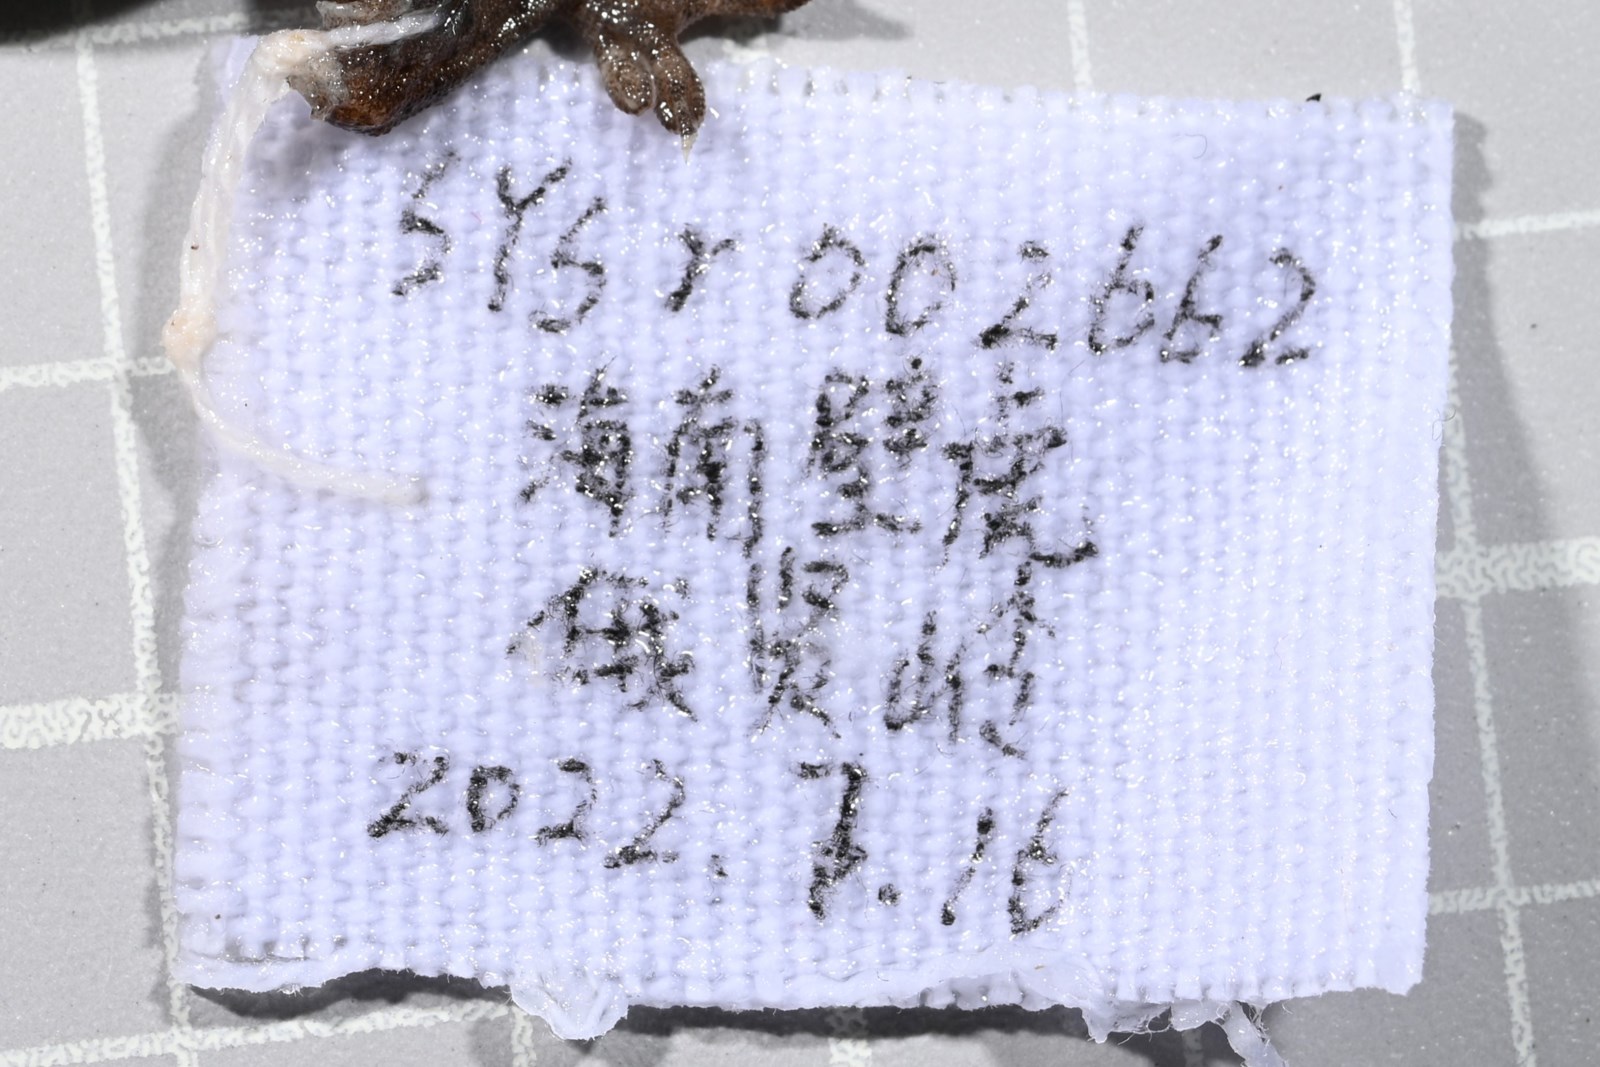 SYS r002662
海南壁虎
俄贤岭
2022.7.16